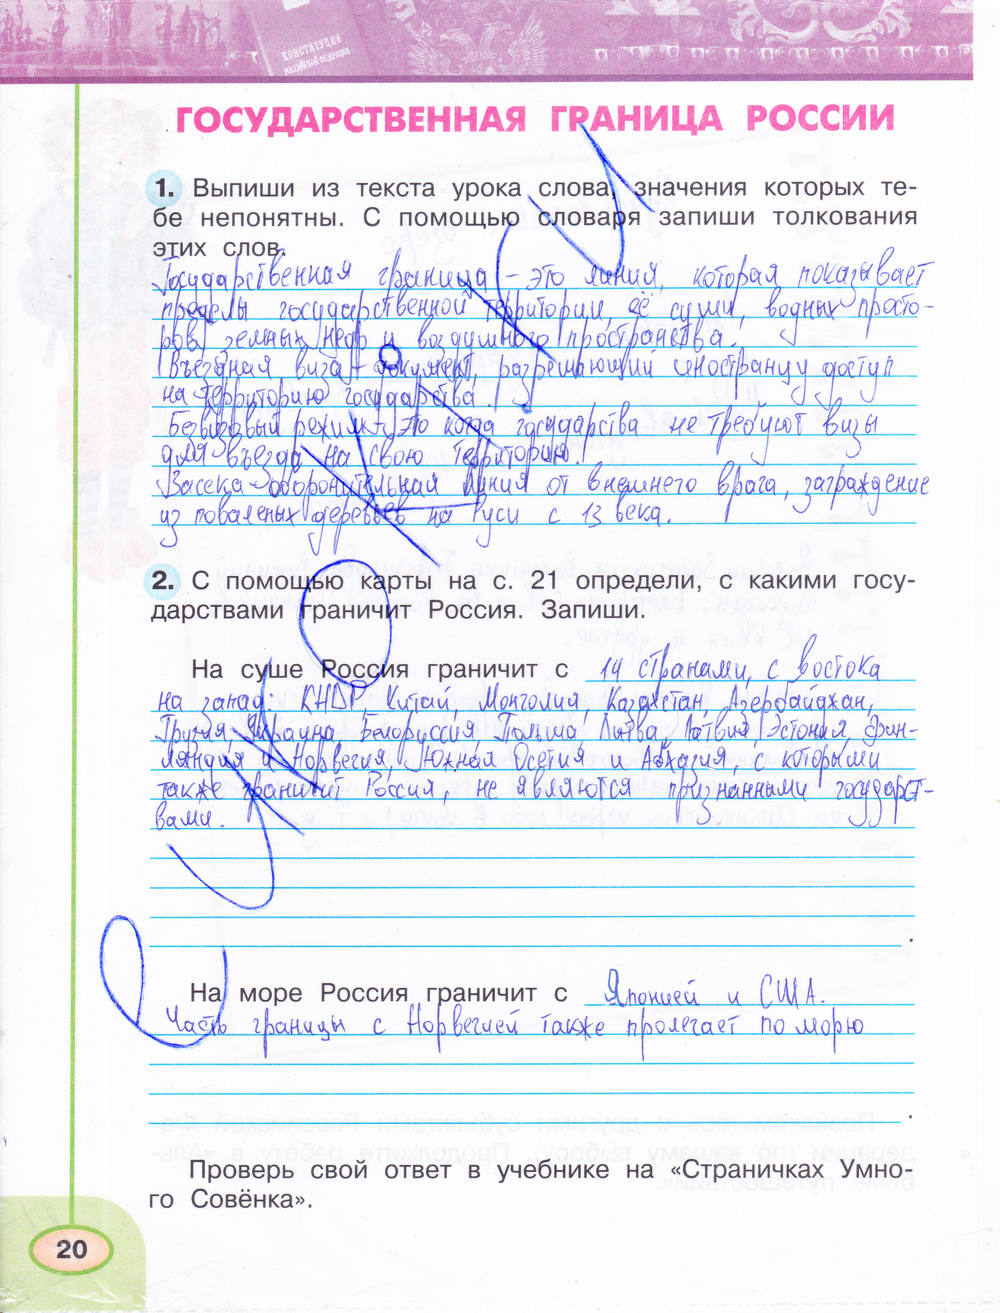 КОНСТИТУЦИЯ
РОССИЙСКОЙ ФЕДЕРАЦИИ
ГОСУДАРСТВЕННАЯ ГРАНИЦА РОССИИ
1. Выпиши из текста урока слова, значения которых те-
бе непонятны. С помощью словаря запиши толкования
этих слов.
Государственная граница – это линия, которая показывает
пределы государственной территории, её суши, водных просто-
ров, земных недр и воздушного пространства.
Въездная виза – документ, разрешающий иностранцу доступ
на территорию государства.
Безвизовый режим – это когда государства не требуют визы
для въезда на свою территорию.
Засека – оборонительная линия от внешнего врага, заграждение
из поваленых деревьев на Руси с 13 века.
2. С помощью карты на с. 21 определи, с какими госу-
дарствами граничит Россия. Запиши.
На суше Россия граничит с 14 странами, с востока
на запад: КНДР, Китай, Монголия, Казахстан, Азербайджан,
Грузия, Украина, Белоруссия, Польша, Литва, Латвия, Эстония, Фин-
ляндия и Норвегия, Южная Осетия и Абхазия, с которыми
также граничит Россия, не являются признанными государст-
вами.
На море Россия граничит с Японией и США.
Часть границы с Норвегией также пролегает по морю
Проверь свой ответ в учебнике на «Страничках Умно-
го Совёнка».
20